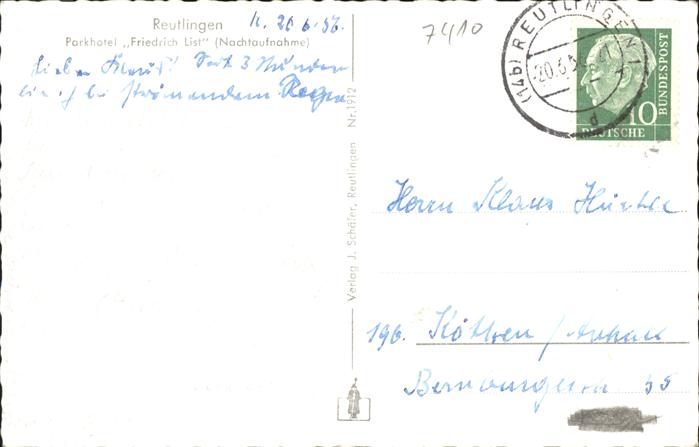 Reutlingen
20 6. 56.
Parkhotel „Friedrich List" (Nachtaufnahme)
Lieber Klaus! Seit 3 Stunden
bin ich bei strömendem Regen
7410
(14b) REUTLINGEN 1
20.6.5
d
10
BUNDESPOST
DEUTSCHE
Verlag J. Schäfer, Reutlingen Nr. 1912
Herrn Klaus
19b. Köthen / Anhalt
55